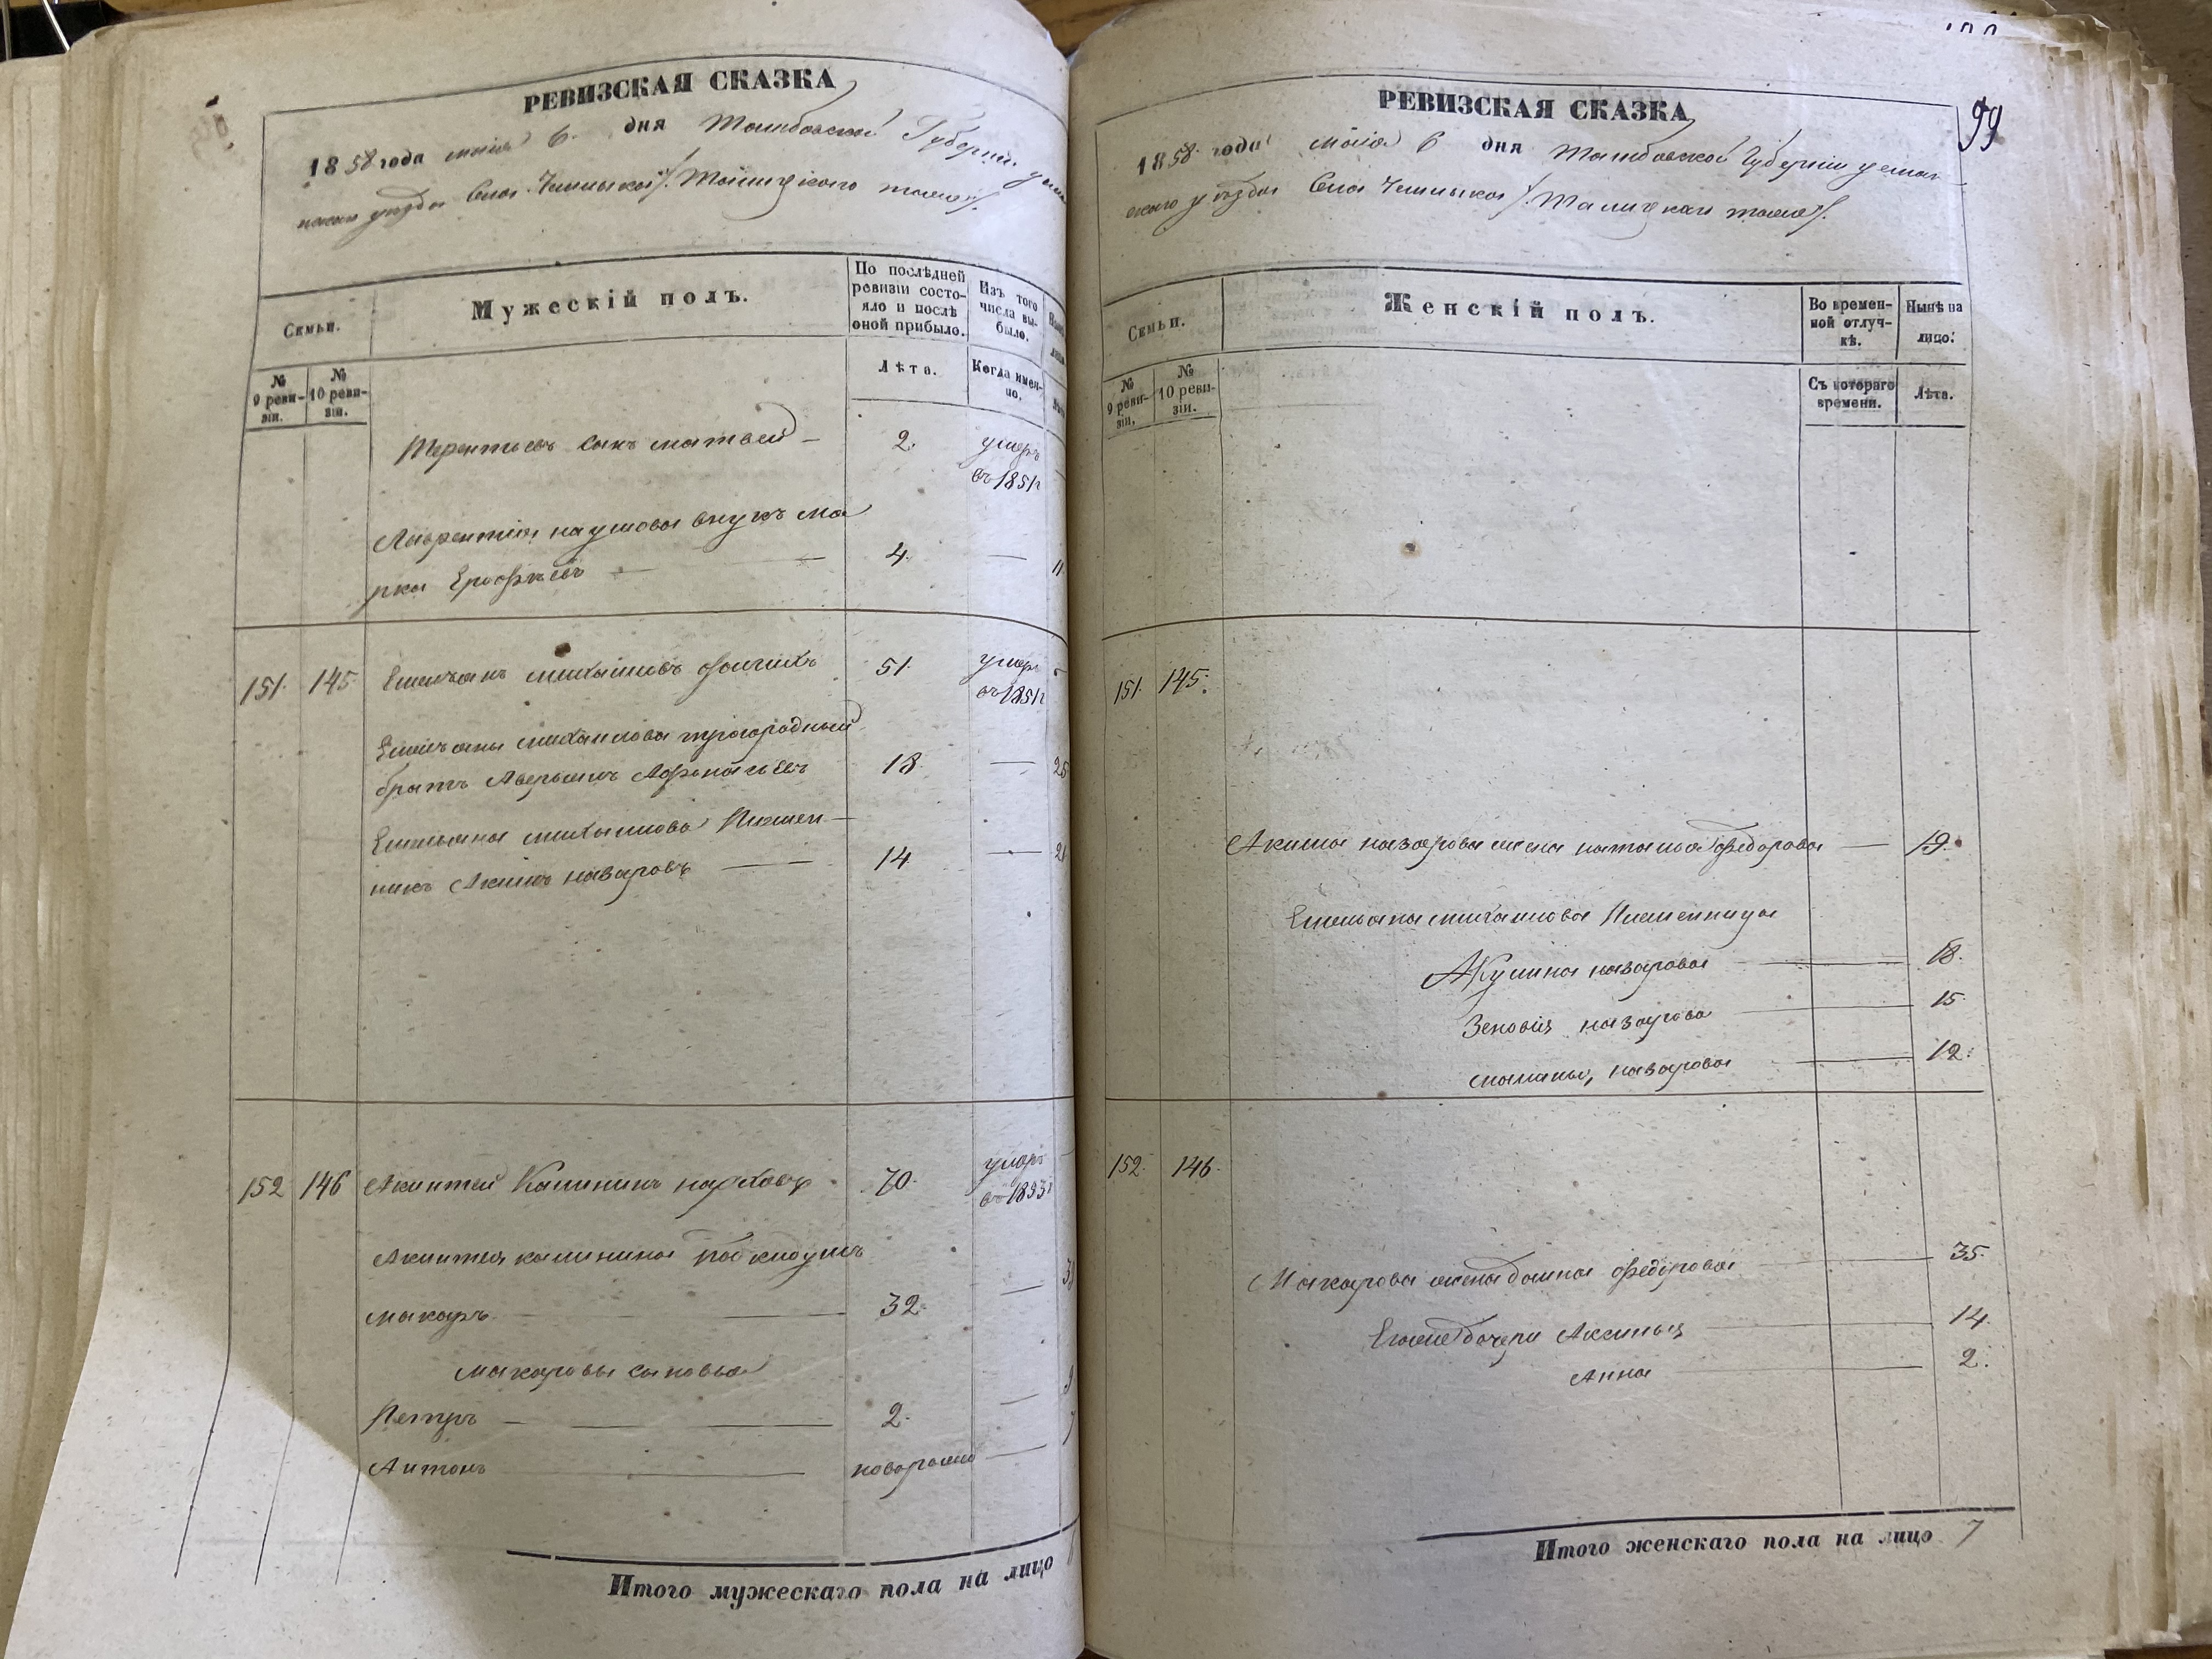 РЕВИЗСКАЯ СКАЗКА
1858 года маія 6 дня Тамбовской Губерніи усман
скаго уѣзда Села Чемлыка /: Талицкаго тожъ :/
Семьи.
Мужескій полъ.
По послѣдней ревизіи состояло и послѣ оной прибыло.
Изъ того числа выбыло.
№ 9 ревизіи.
№ 10 ревизіи.
Лѣта.
Когда именно.
Терентьевъ сынъ матвей 2. умеръ въ 1851г
Лаврентія наумова внукъ ма
рка Ерофѣевъ 4. 11
151. 145 Емельянъ михайловъ 51. умеръ въ 1851г
Емельяна михаилова троюродный
братъ Аверьянъ Афонасьевъ 18 — 26
Емельяна михаилова Племен-
никъ Акимъ назаровъ 14 — 2
152 146 Акинтей Калининъ 70. умеръ въ 1853
Акинтея калинина подкидышъ
макаръ 32.
макаровы сыновья
Петръ 2. 9
Антонъ новорожд
Итого мужескаго пола на лицо
99
РЕВИЗСКАЯ СКАЗКА
1858 года маія 6 дня Тамбовской Губерніи усман-
скаго уѣзда Села Чемлыка /: Талицкаго тожъ :/
Семьи.
Женскій полъ.
Во временной отлучкѣ.
Нынѣ на лицо.
№ 9 ревизіи.
№ 10 ревизіи.
Съ котораго времени.
Лѣта.
151. 145.
Акима назарова жена наталья федорова — 19
Емельяна михаилова Племенница
Акулина назарова 18.
Зеновія назарова 15
маланья, назарова 12.
152. 146.
Макарова жена домна федорова 35.
Егоже дочери Аксинья 14.
Анна 2.
Итого женскаго пола на лицо 7